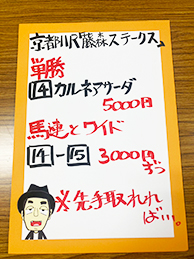 京都11R「藤森ステークス」
単勝
14 カルネアサーダ
5000円
馬連とワイド
14-15 3000円ずつ
※先手取れれば…。